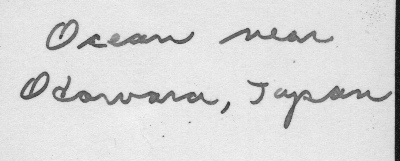 Ocean near
Odowara, Japan